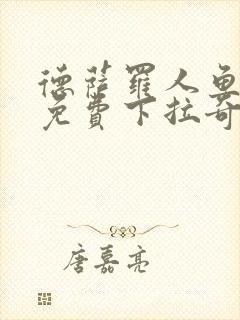 德萨罗人鱼
免费下拉奇
唐嘉亮